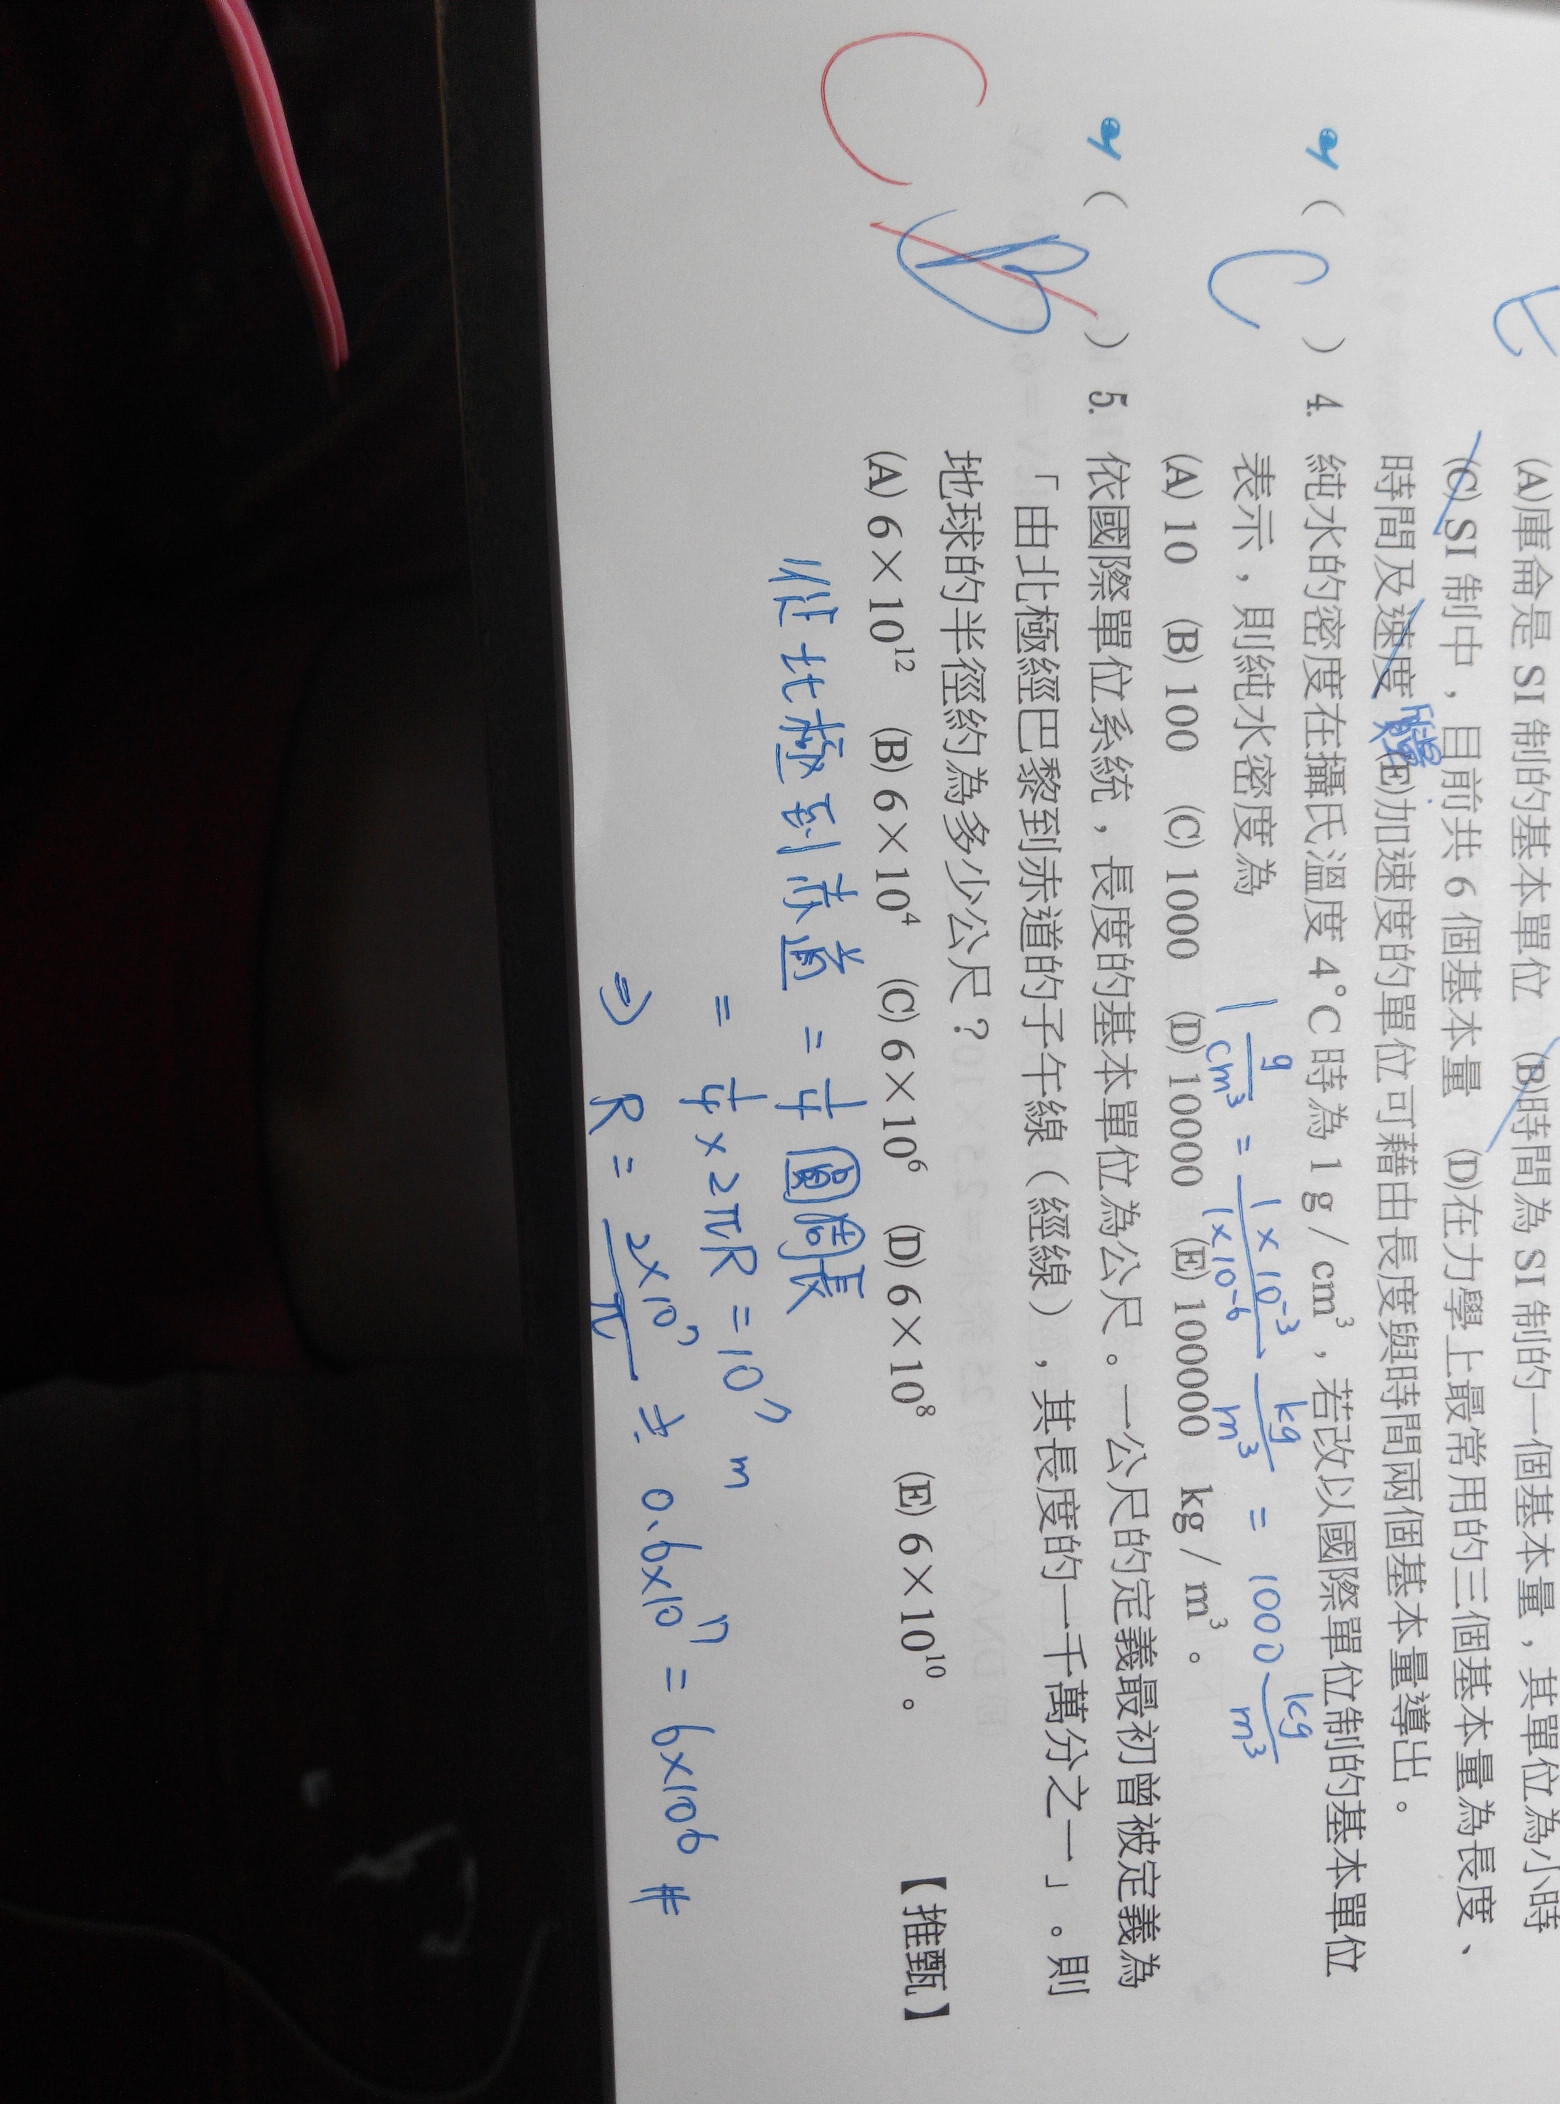 (A)庫侖是 SI 制的基本單位 (B)時間為 SI 制的一個基本量，其單位為小時
(C) SI 制中，目前共 6 個基本量 (D)在力學上最常用的三個基本量為長度、
時間及速度 (E)加速度的單位可藉由長度與時間兩個基本量導出。
( C ) 4. 純水的密度在攝氏溫度 4°C 時為 1 g / cm³，若改以國際單位制的基本單位
表示，則純水密度為
1 g/cm³ = 1×10⁻³/1×10⁻⁶ kg/m³ = 1000 kg/m³
(A) 10 (B) 100 (C) 1000 (D) 10000 (E) 100000 kg / m³。
( B ) 5. 依國際單位系統，長度的基本單位為公尺。一公尺的定義最初曾被定義為
C
「由北極經巴黎到赤道的子午線（經線），其長度的一千萬分之一」。則
地球的半徑約為多少公尺？
(A) 6×10¹² (B) 6×10⁴ (C) 6×10⁶ (D) 6×10⁸ (E) 6×10¹⁰。 【推甄】
從北極到赤道 = 1/4 圓周長
= 1/4 × 2πR = 10⁷ m
⇒ R = 2×10⁷/π ≒ 0.6×10⁷ = 6×10⁶ #